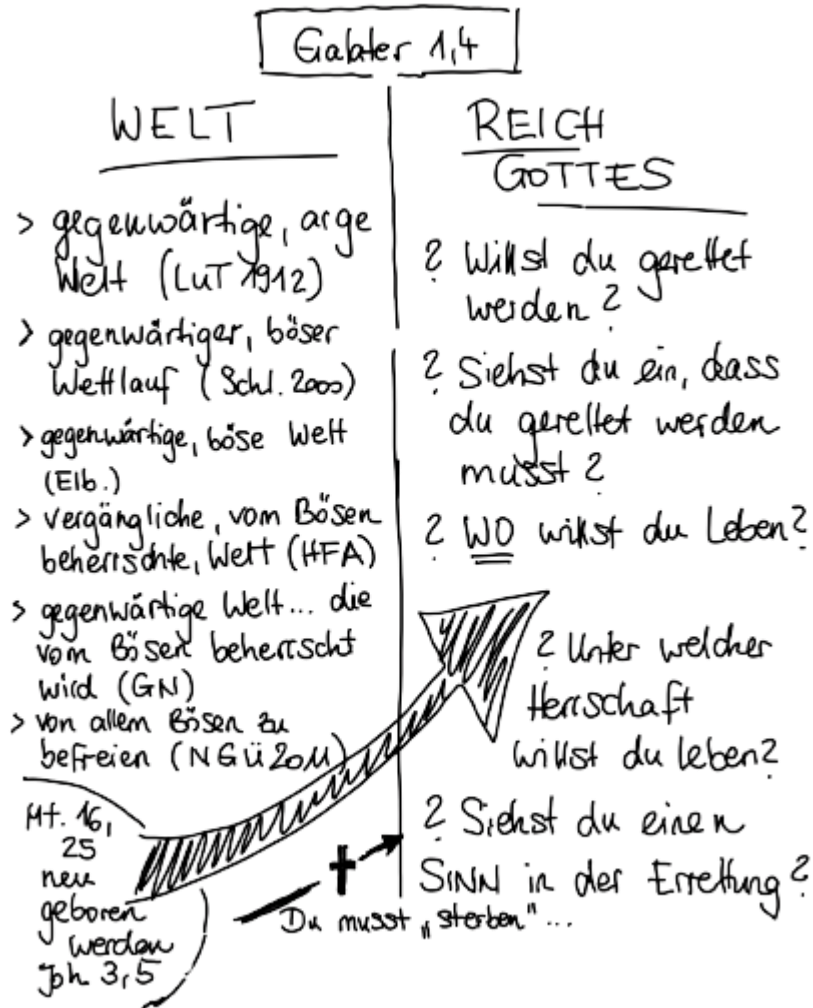 Galater 1,4
WELT
> gegenwärtige, arge
Welt (LUT 1912)
> gegenwärtiger, böser
Weltlauf (Schl. 2000)
> gegenwärtige, böse Welt
(Elb.)
> vergängliche, vom Bösen
beherrschte, Welt (HFA)
> gegenwärtige Welt... die
vom Bösen beherrscht
wird (GN)
> von allem Bösen zu
befreien (NGÜ 2011)
Mt. 16,
25
neu
geboren
werden
Joh. 3,5
Du musst „sterben"...
REICH
GOTTES
? Willst du gerettet
werden?
? Siehst du ein, dass
du gerettet werden
musst?
? WO willst du Leben?
? Unter welcher
Herrschaft
willst du leben?
? Siehst du einen
SINN in der Errettung?